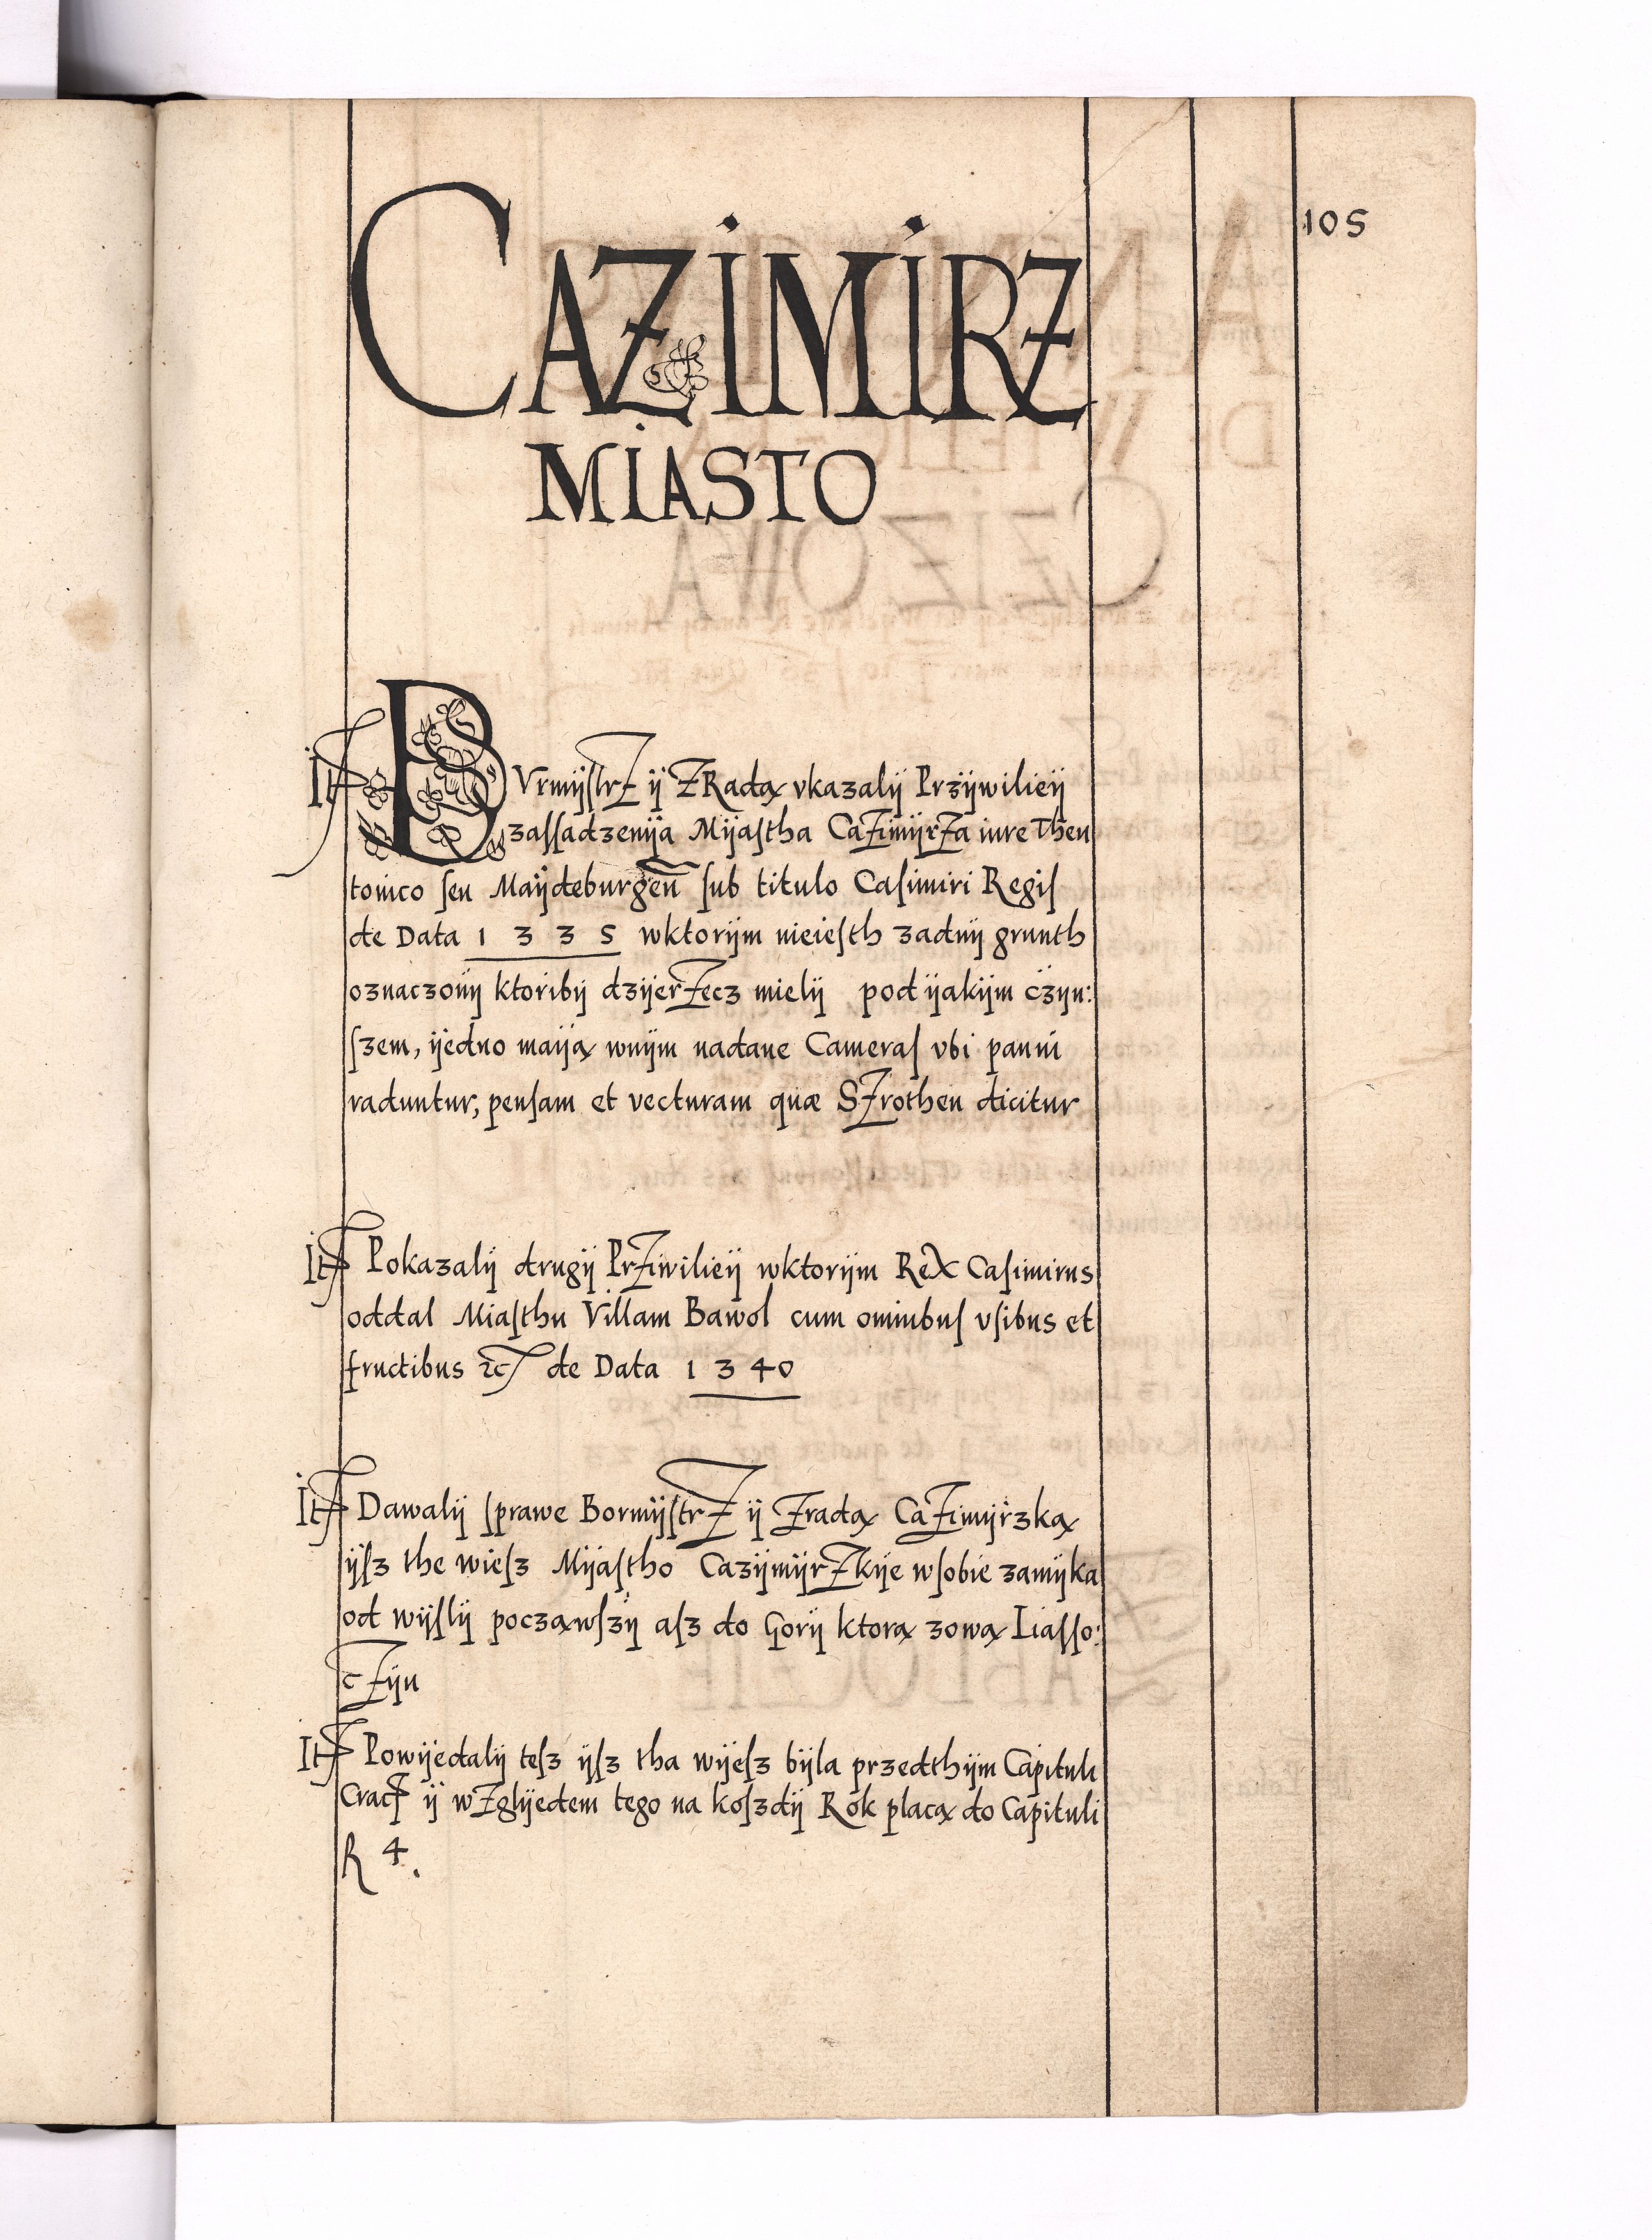 105
CAZIMIRZ
MIASTO
Itꝭ BVrmÿſtrZ ÿ ZRadą vkazalÿ Przÿwilieÿ
zaſſadzenÿa Mÿaſtha CaZimÿrZa iure Theu
tonico ſeu Maÿdeburgen̄ ſub titulo Caſimiri Regiſ
de Data 1 3 3 5 wktorÿm nieieſth zadnÿ grunth
oznaczonÿ ktoribÿ dzÿerZecz mielÿ pod ÿakÿm czÿn:
ſzem, ÿedno maÿą wnÿm nadane Cameraſ vbi panni
raduntur, penſam et vecturam quæ SZrothen dicitur
Itꝭ Pokazalÿ drugÿ PrZiwilieÿ wktorÿm ReX Caſimirus
oddal Miaſthu Villam Bawol cum omnibuſ vſibus et
fructibus ꝛcꝭ de Data 1 3 4 0
Itꝭ Dawalÿ ſprawe BormÿſtrZ ÿ Zradą CaZimÿrzką
ÿſz the wieſz Mÿaſtho CazÿmÿrZkÿe wſobie zamÿka
od wÿſlÿ począwſzÿ aſz do Gorÿ ktorą zową Liaſſo:
cZÿn
Itꝭ Powÿedalÿ teſz ÿſz tha wÿeſz bÿla przedthÿm Capituli
Cracꝭ ÿ wZglÿedem tego na koſzdÿ Rok placą do Capituli
R 4.